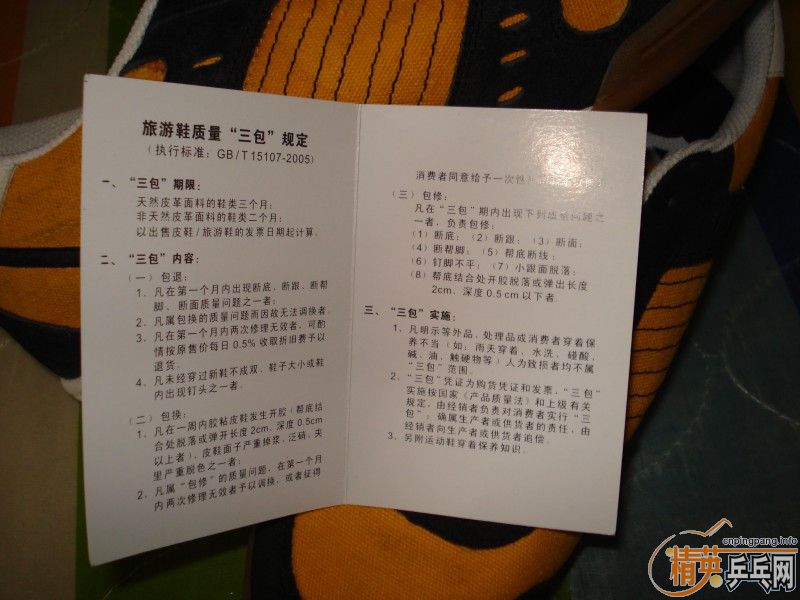 旅游鞋质量“三包”规定
(执行标准：GB/T 15107-2005)
一、“三包”期限：
天然皮革面料的鞋类三个月；
非天然皮革面料的鞋类二个月；
以出售皮鞋/旅游鞋的发票日期起计算。
二、“三包”内容：
(一) 包退：
1、凡在第一个月内出现断底、断跟、断帮
脚、断面质量问题之一者；
2、凡属包换的质量问题而因故无法调换者。
3、凡在第一个月内两次修理无效者，可酌
情按原售价每日0.5%收取折旧费予以
退货。
4、凡未经穿过新鞋不成双，鞋子大小或鞋
内出现钉头之一者。
(二) 包换：
1、凡在一周内胶粘皮鞋发生开胶(帮底结
合处脱落或弹开长度2cm、深度0.5cm
以上者)、皮鞋面子严重掉浆，泛硝，夹
里严重脱色之一者。
2、凡属“包修”的质量问题，在第一个月
内两次修理无效者予以调换，或者征得
消费者同意给予一次性
(三) 包修：
凡在“三包”期内出现下列质量问题之
一者，负责包修：
(1) 断底；(2) 断跟；(3) 断面；
(4) 断帮脚；(5) 帮底断线；
(6) 钉脚不平；(7) 小跟面脱落；
(8) 帮底结合处开胶脱落或弹出长度
2cm、深度0.5cm以下者。
三、“三包”实施：
1、凡明示等外品、处理品或消费者穿着保
养不当(如：雨天穿着、水洗、碰酸、
碱、油、触硬物等)人为致损者均不属
“三包”范围。
2、“三包”凭证为购货凭证和发票，“三包”
实施按国家《产品质量法》和上级有关
规定，由经销者负责对消费者实行“三
包”；确属生产者或供货者的责任，由
经销者向生产者或供货者追偿。
3、另附运动鞋穿着保养知识。
cnpingpang.info
精英乒乓网